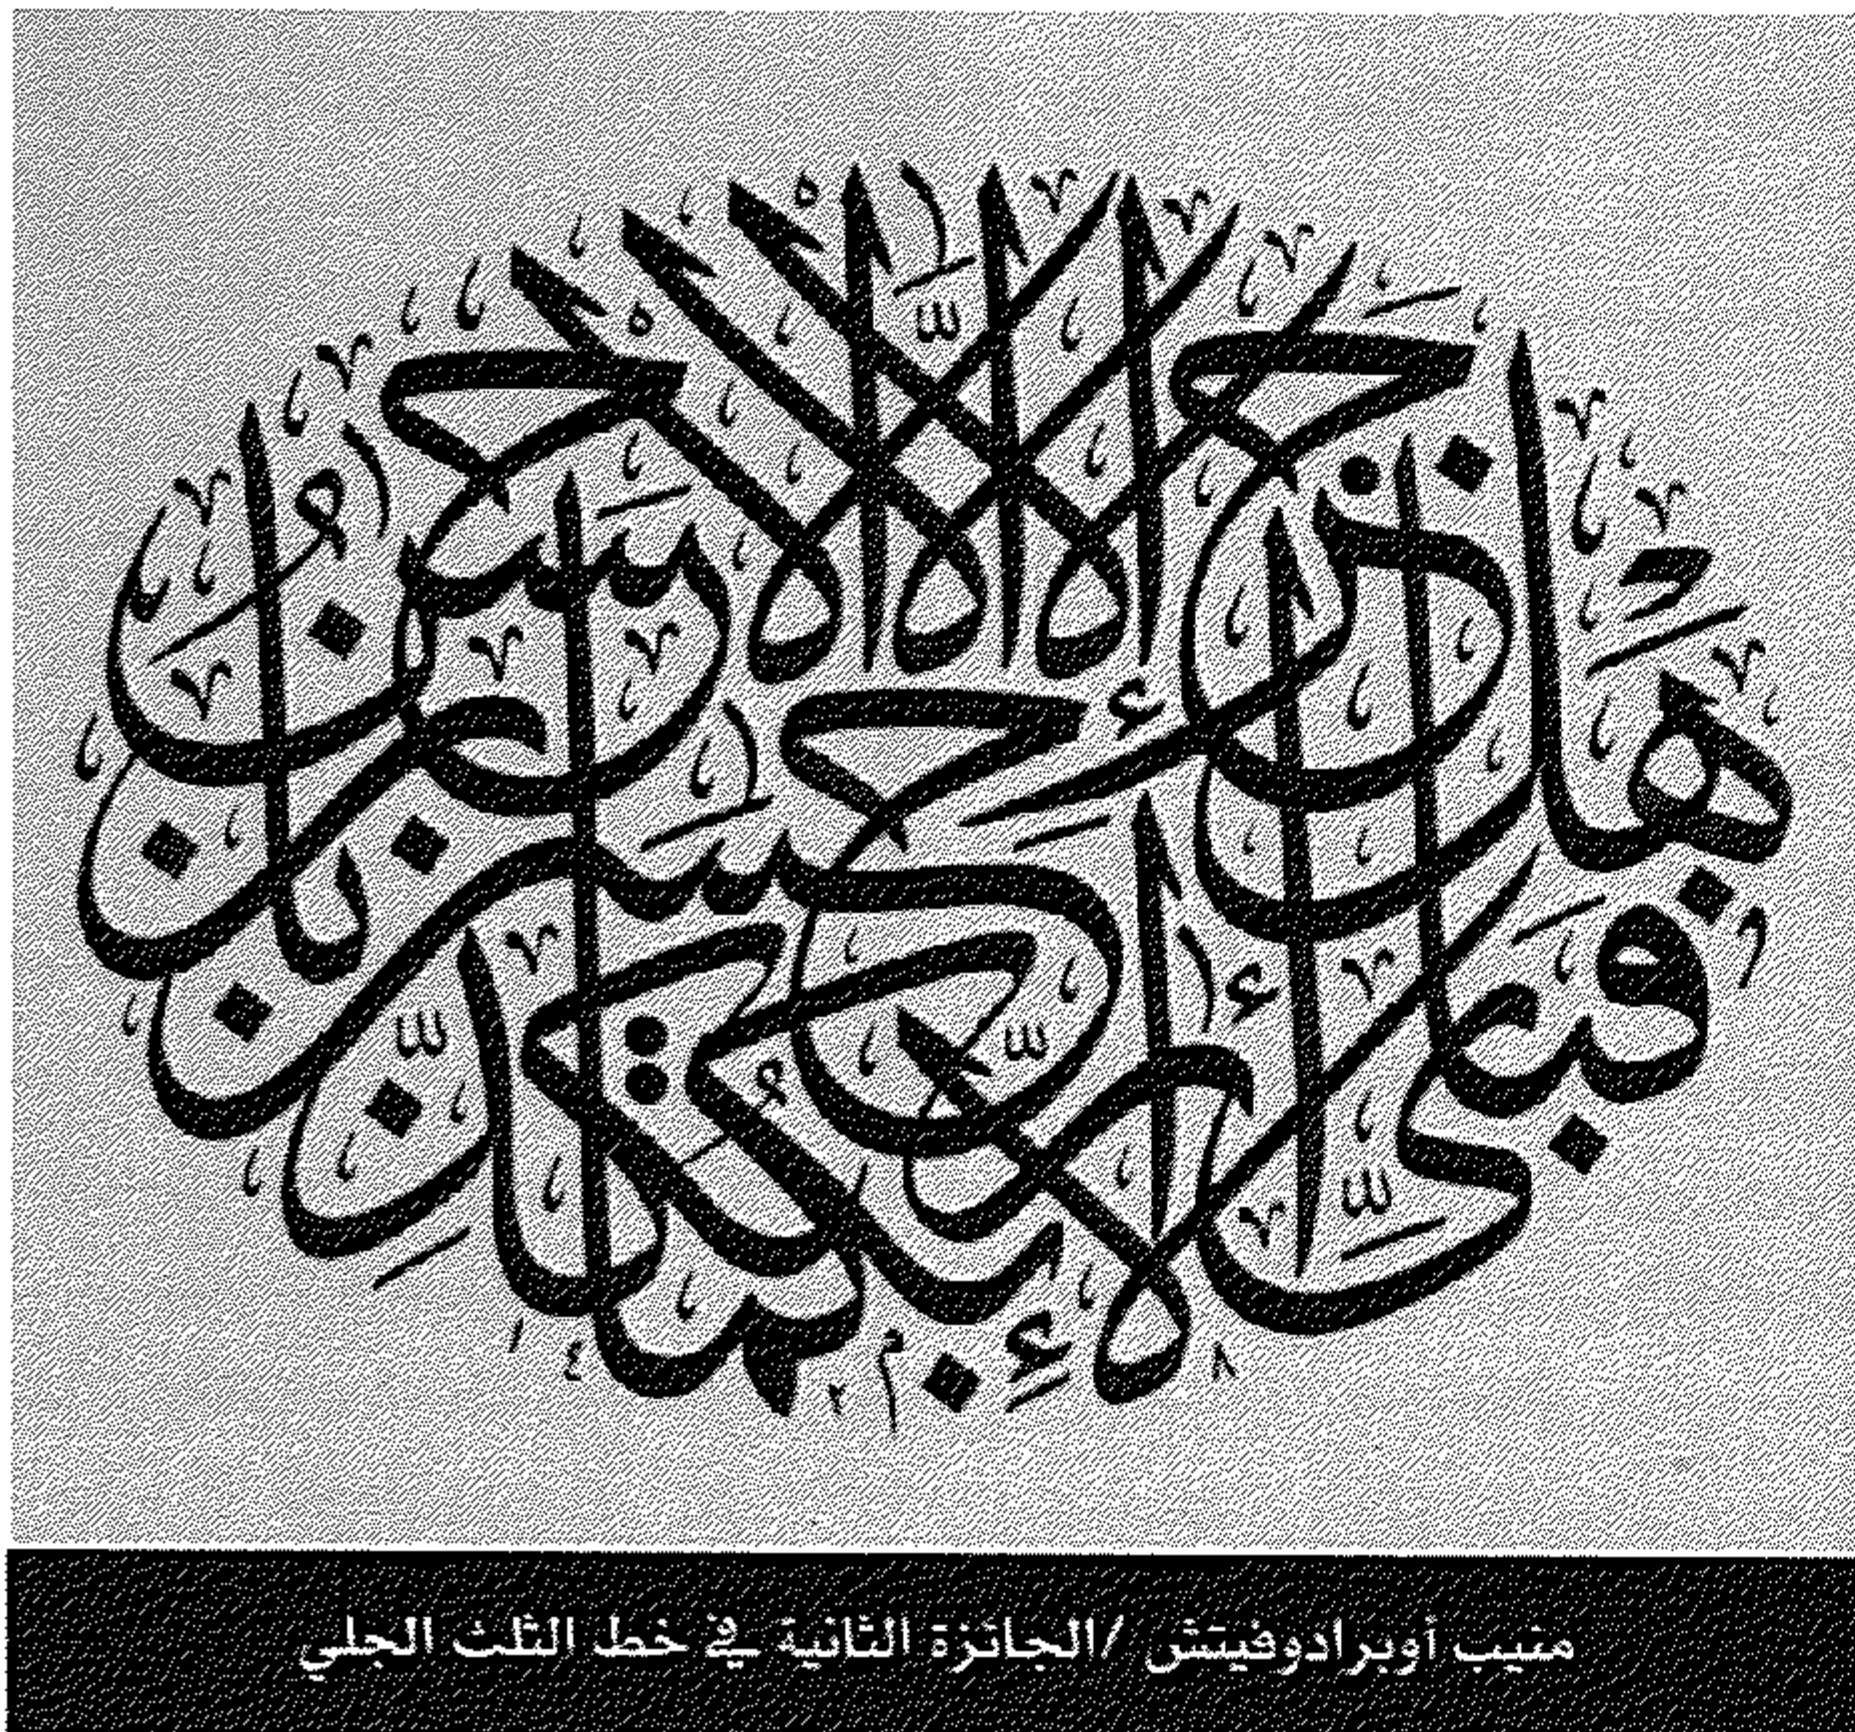 هَلْ جَزَاءُ الْإِحْسَانِ إِلَّا الْإِحْسَانُ
فَبِأَيِّ آلَاءِ رَبِّكُمَا تُكَذِّبَانِ
١٤٢٨
منيب أوبرادوفيتش /الجائزة الثانية في خط الثلث الجلي